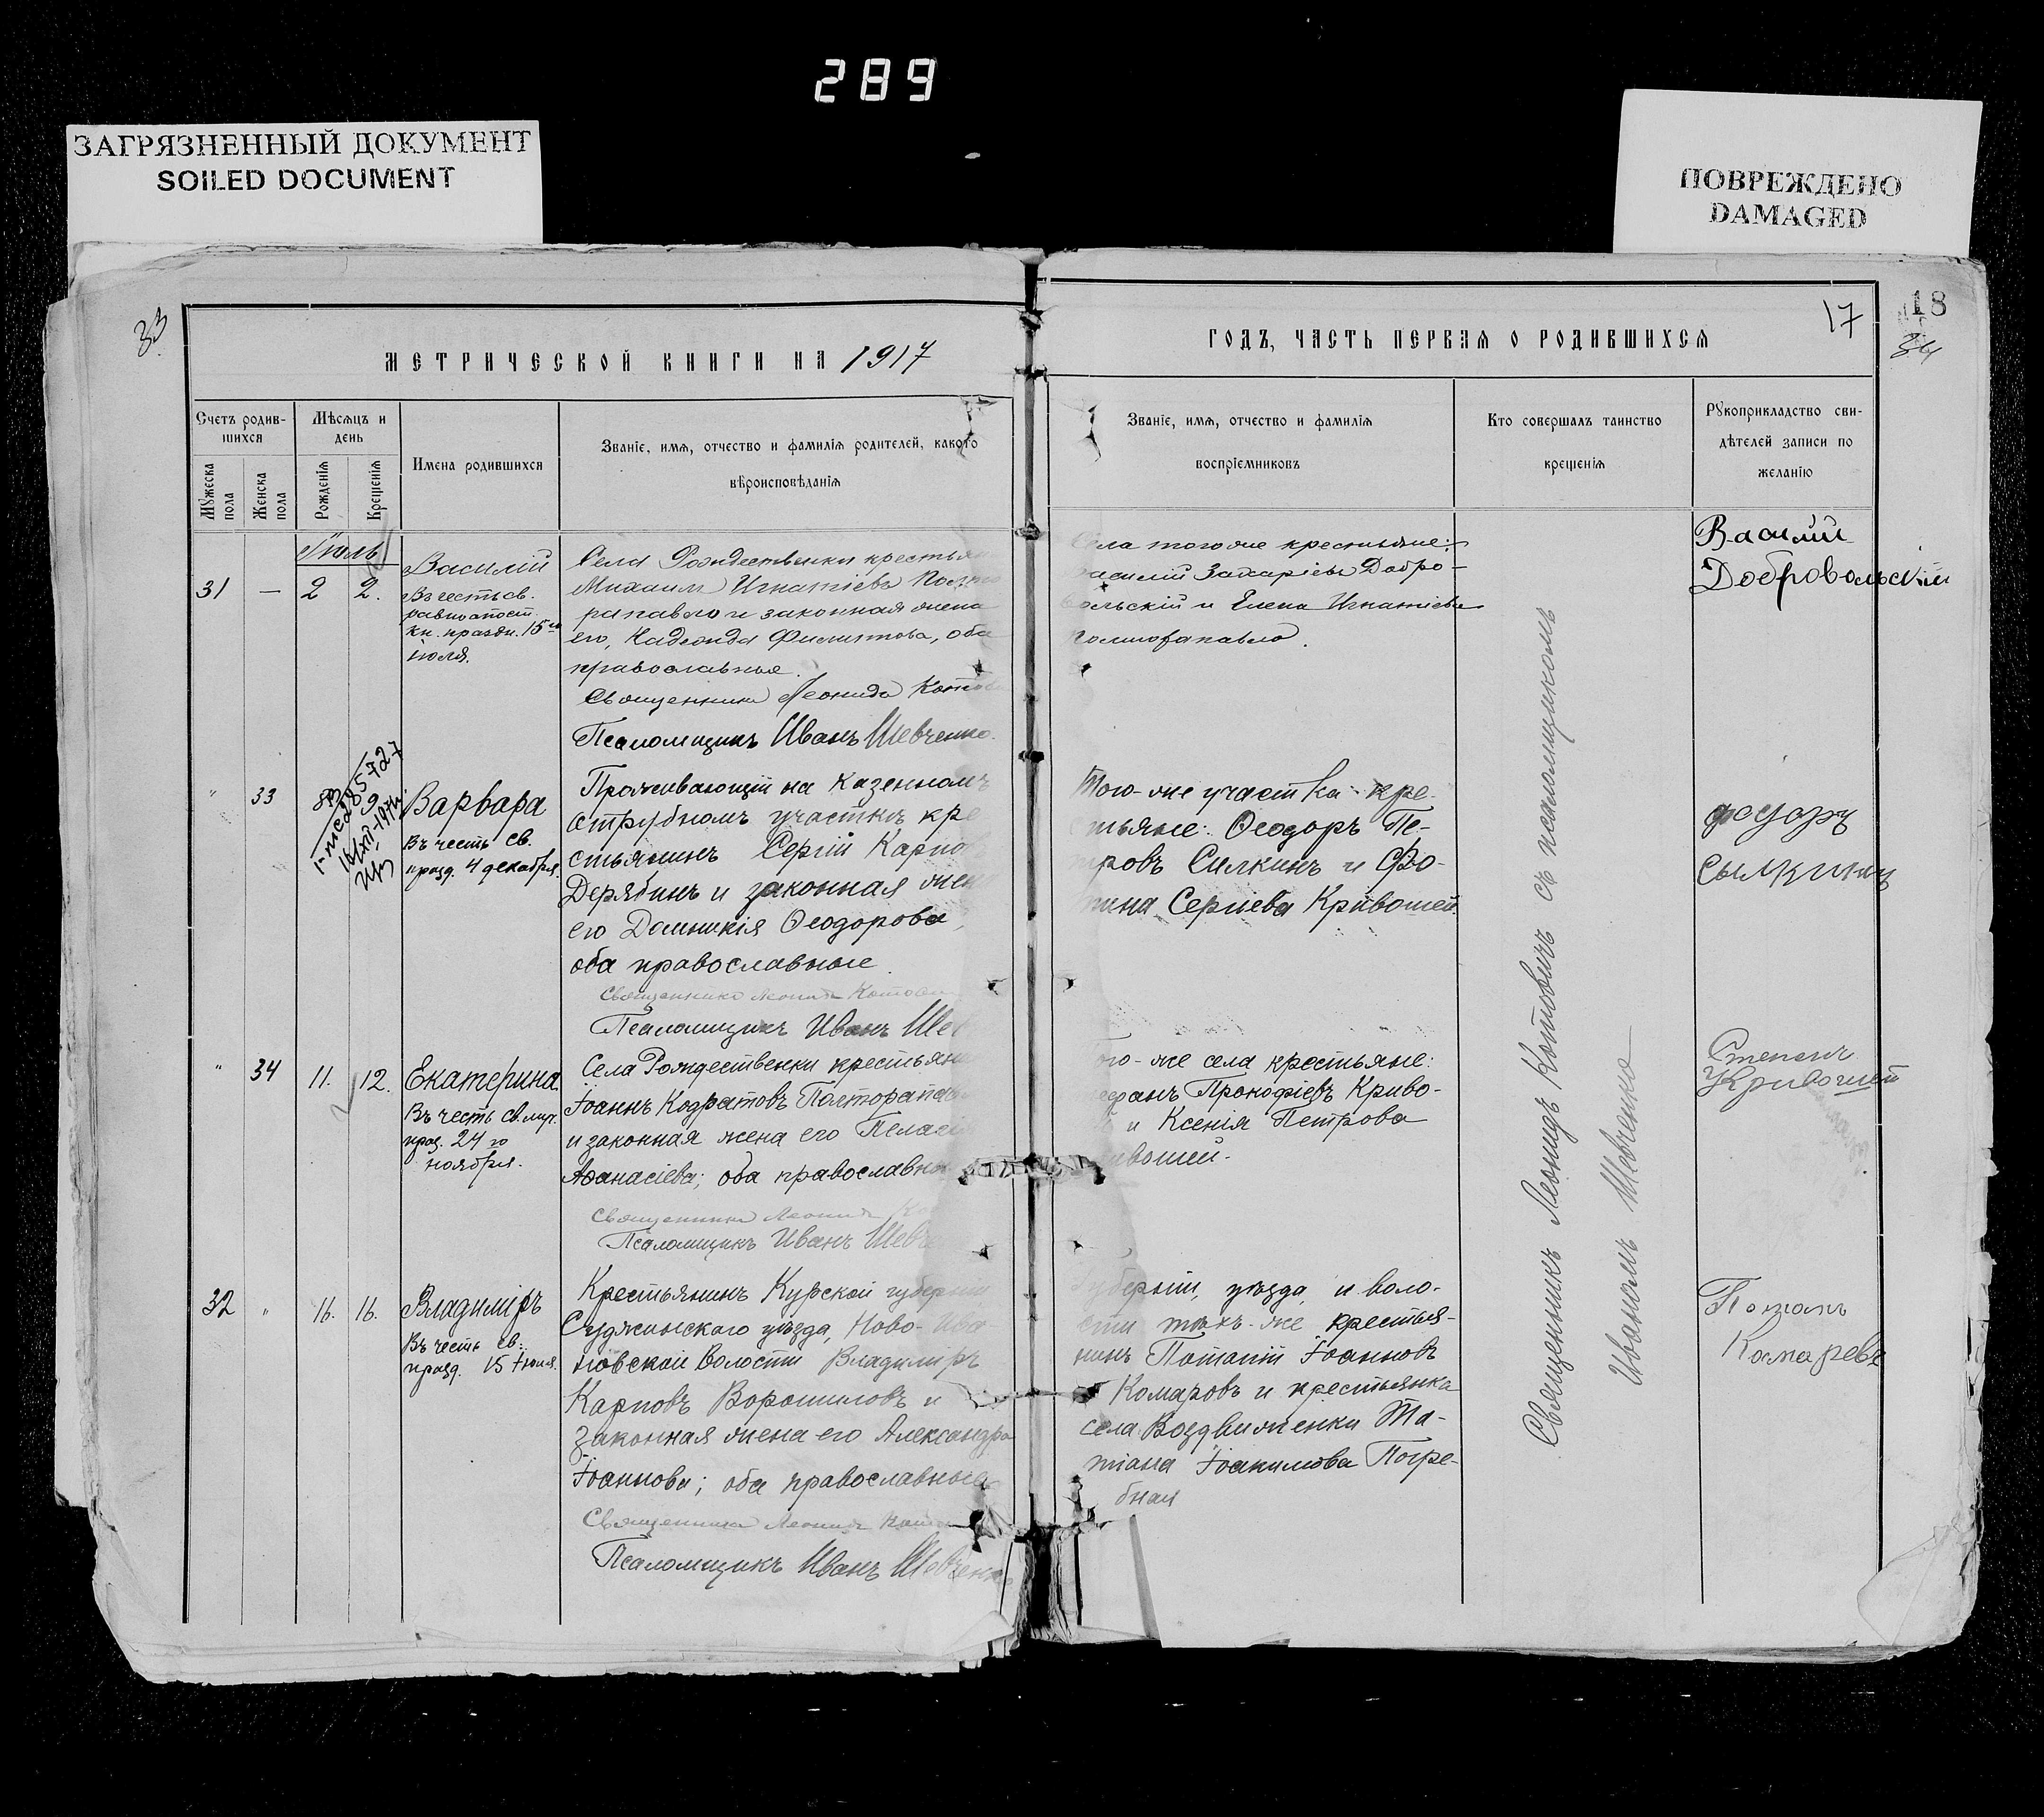 289
ЗАГРЯЗНЕННЫЙ ДОКУМЕНТ
SOILED DOCUMENT
ПОВРЕЖДЕНО
DAMAGED
33
МЕТРИЧЕСКОЙ КНИГИ НА 1917
Счетъ родив-
шихся
Мѣсяцъ и
день
Мужеска
пола
Женска
пола
Рожденія
Крещенія
Имена родившихся
Званіе, имя, отчество и фамилія родителей, какого
вѣроисповѣданія
Іюль
31 — 2 2.
Василій
Въ честь св.
равноапост.
кн. праздн. 15го
июля.
Села Рождественки крестья
Михаилъ Игнатіевъ
рапавло и законная жена
его, Надежда Филиппова, оба
православные.
Священникъ Леонидъ
Псаломщикъ Иванъ Шевченко.
" 33 9
Варвара
Въ честь св.
празд. 4 декабря.
Проживающій на Казенномъ
отрубномъ участкѣ кре
стьянинъ Сергій Карпов
Дерябинъ и законная жен
его Домникія Ѳеодорова,
оба православные.
Священникъ Леонидъ
Псаломщикъ Иванъ Шев
" 34 11. 12.
Екатерина
Въ честь св. муч.
праз. 24 го
ноября.
Села Рождественки крестьяни
Іоаннъ Кодратовъ Полторапав
и законная жена его Пелаг
Аѳанасіева; оба православны
Священникъ Леонидъ
Псаломщикъ Иванъ Шевч
32 " 16. 16.
Владиміръ
Въ честь св.
празд. 15 Іюля.
Крестьянинъ Курской губерніи
Суджинскаго уѣзда, Ново-Ива
новской Волости Владиміръ
Карповъ Ворошиловъ и
законная жена его Александра
Іоаннова; оба православные
Священникъ Леонидъ
Псаломщикъ Иванъ Шевченк
ГОДЪ, ЧАСТЬ ПЕРВАЯ О РОДИВШИХСЯ
17
18
34
Званіе, имя, отчество и фамилія
воспріемниковъ
Кто совершалъ таинство
крещенія
Рукоприкладство сви-
дѣтелей записи по
желанію
села того же крестьяне:
асилій Захаріевъ Добро-
вольскій и Елена Игнатіева
Полторапавло.
Василий
Добровольский
Того-же участка кре
стьяне: Ѳеодоръ Пе-
тровъ Силкинъ и Фо-
тина Сергіева Кривошей.
Федоръ
Сылкинъ
ого-же села крестьяне:
ефанъ Прокофіевъ Криво-
и Ксенія Петрова
ивошей.
Степанъ
Кривошей
губерніи, уѣзда и воло-
сти тѣхъ-же крестья-
нинъ Потапій Іоанновъ
Комаровъ и крестьянка
села Воздвиженки Та-
тіана Іоакимова Погре-
бная
Потапъ
Комаревъ
Священникъ Леонидъ Котовичъ съ псаломщикомъ
Иваномъ Шевченко